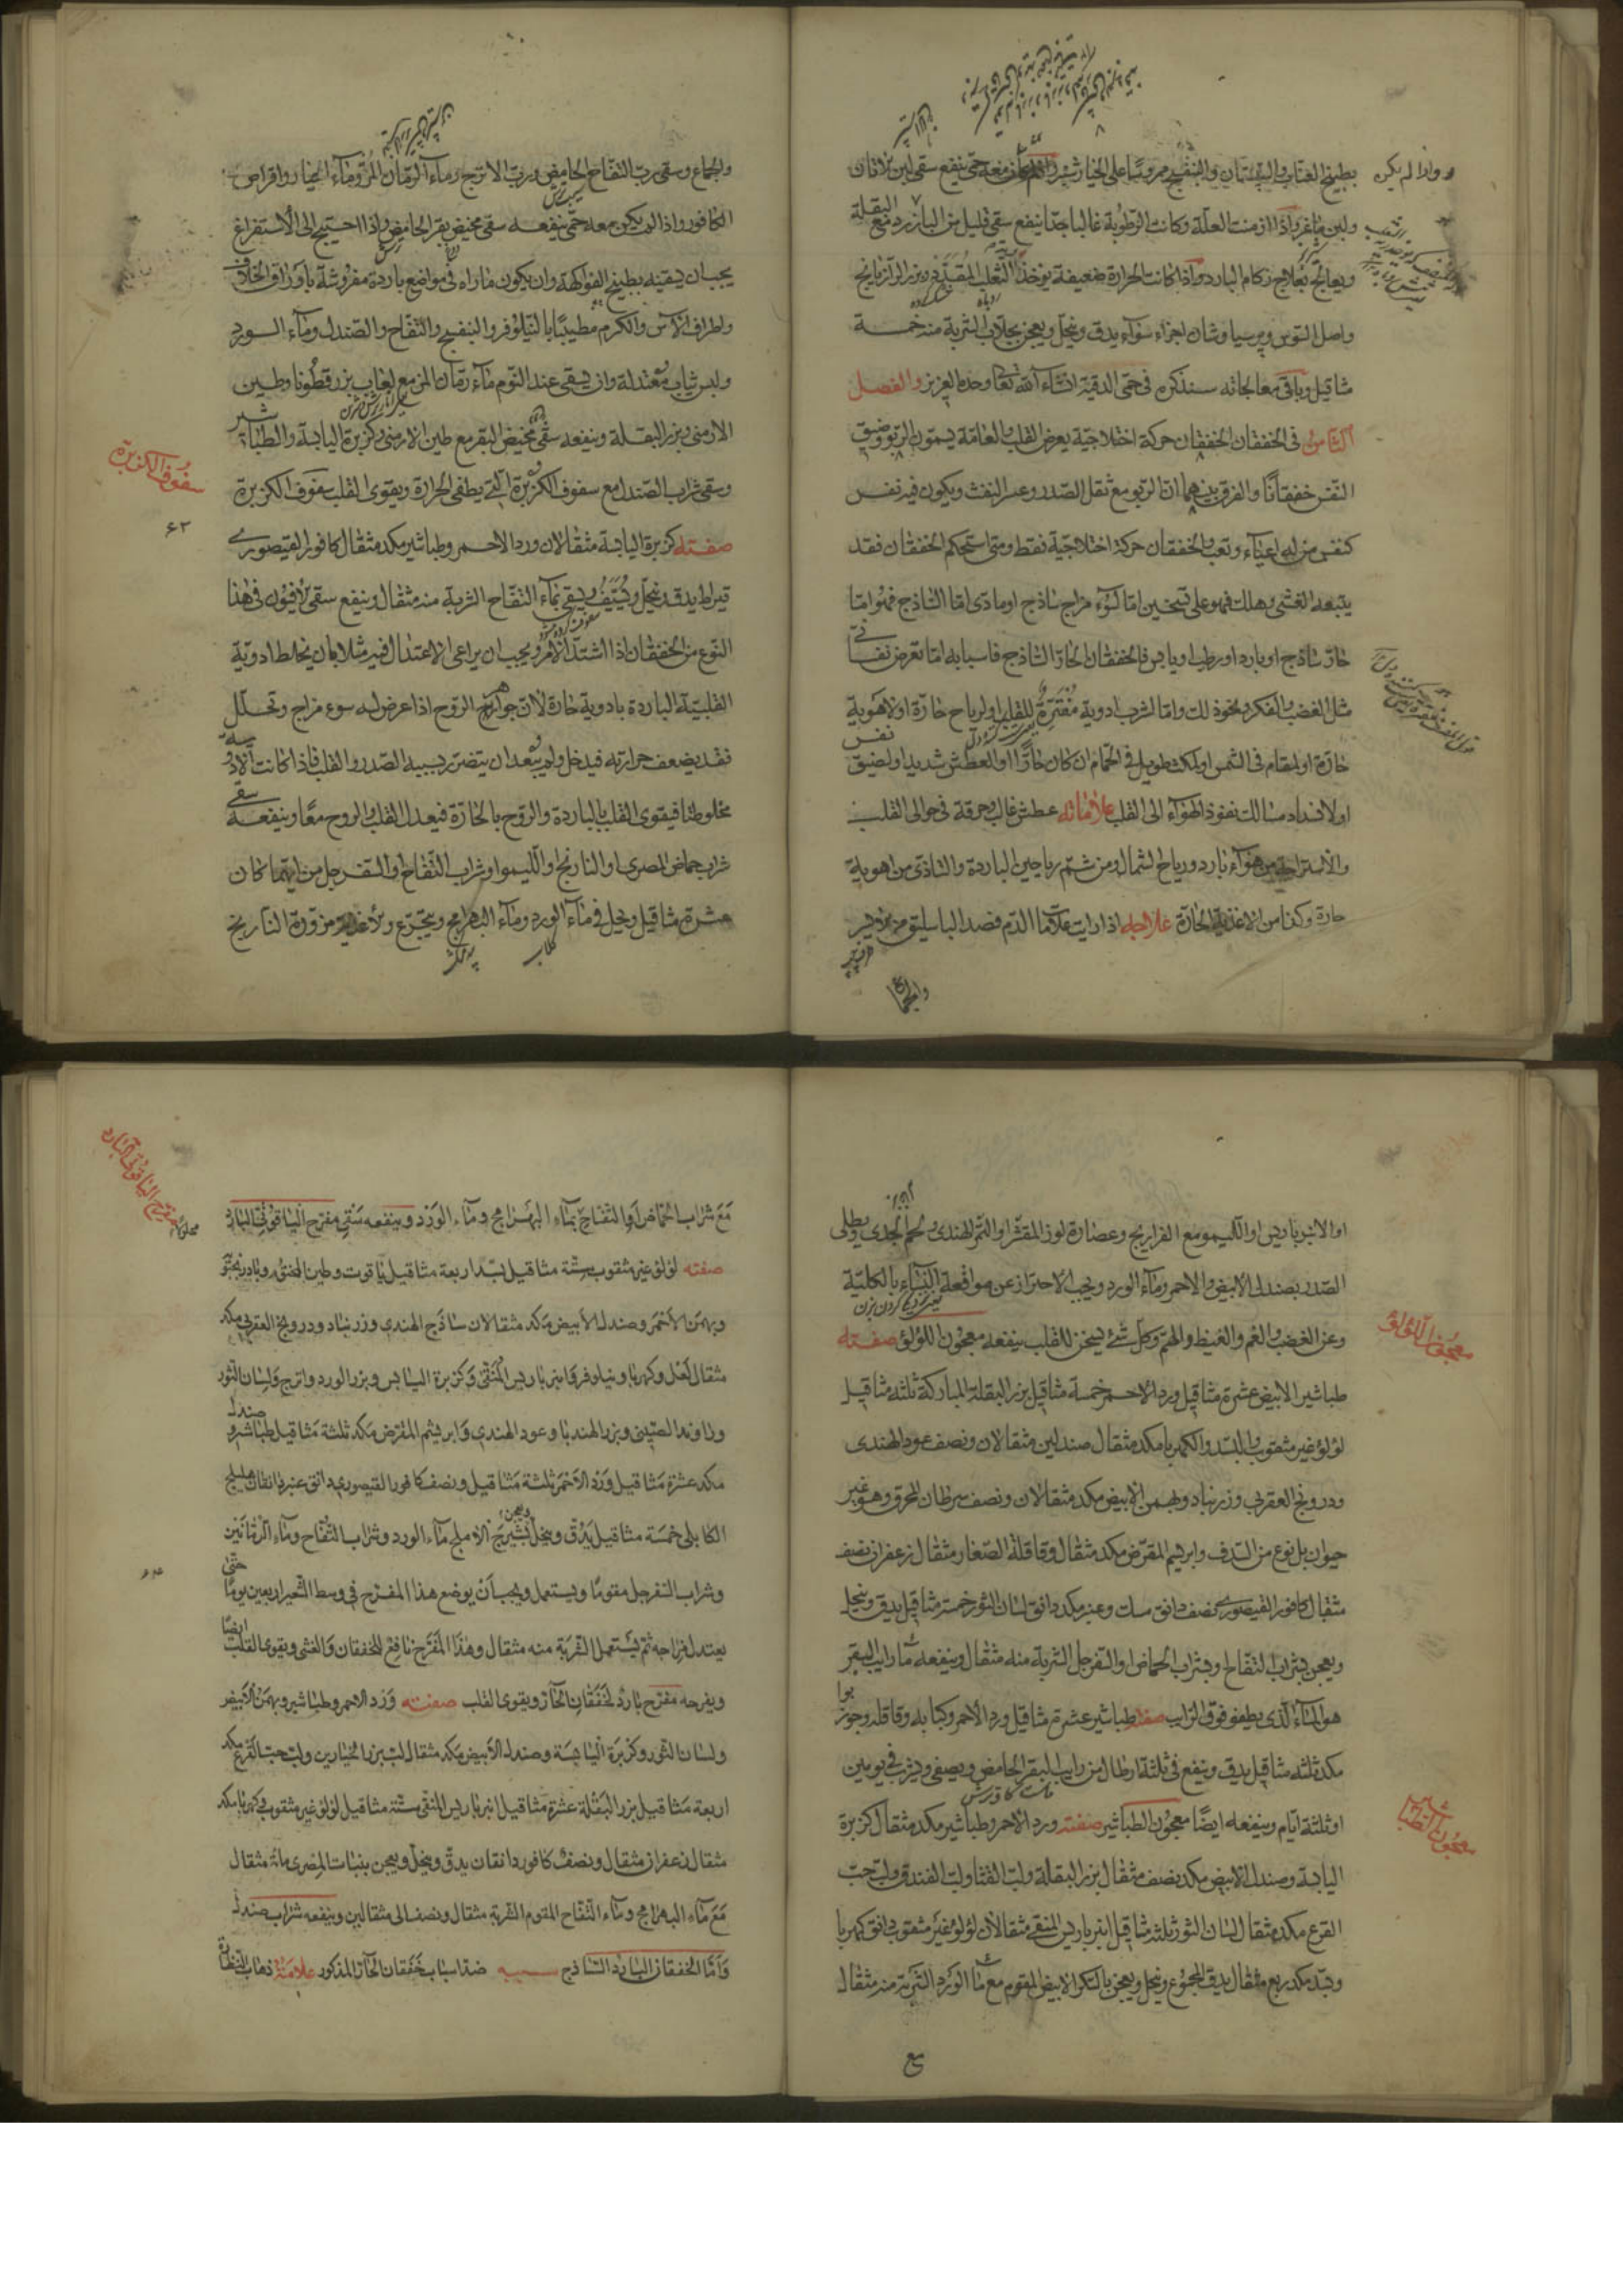 بطبيخ العناب والسپستان والبنفسج مروسًا على الخيار شنبر
ولبن ماعز واذا ازمنت العلة وكانت الرطوبة غالبا جدا ينفع سقى قليل من البارزد مع البقلة
ويعالج بعلاج زكام البارد واذا كانت الحرارة ضعيفة يوخذ الثعلب المقدد وبزر الرازيانج
واصل السوس وپرسياوشان اجزاء سواء يدق وينخل ويعجن بجلاب الشربة منه خمسة
مثاقيل وباقى معالجاته سنذكره فى حمى الدقية انشاء الله تعالى وحده العزيز والفصل
الثامن فى الخفقان الخفقان حركة اختلاجية يعرض القلب والعامة يسمون الربو وضيق
النفس خفقانًا والفرق بينهما ان الربو مع ثقل الصدر وعسر النفث ويكون فيه نفس
كنفس من له اعياء وتعب والخفقان حركة اختلاجية فقط ومتى استحكم الخفقان فقد
يتبعه الغشى وهلك فهو على قسمين اما لسوء مزاج ساذج او مادى اما الساذج فهو اما
حار ساذج او بارد او رطب او يابس فالخفقان الحار الساذج فاسبابه اما تعرض نفسانى
مثل الغضب والفكر ونحو ذلك واما لشرب ادوية للقلب او لرياح حارة او لاهوية
حارة او لمقام فى الشمس او لمكث طويل فى الحمام ان كان حارًا او العطش شديد او لضيق نفس
او لانسداد مسالك نفوذ الهواء الى القلب علاماته عطش غالب وحرقة فى حوالى القلب
والاستراحة من هواء بارد ورياح الشمال ومن شم رياحين الباردة والتاذى من اهوية
حارة وكذا من الاغذية الحارة علاجه اذا رايت علامات الدم فصد الباسليق من
والجماع
والجماع وسقى رب التفاح الحامض ورب الاترج وماء الرمان المز وماء الخيار واقراص
الكافور واذا لم يكن معه حمى ينفعه سقى مخيض بقر الحامض واذا احتيج الى الاستفراغ
يجب ان يسقيه بطبيخ الفواكهة وان يكون ماراه فى مواضع باردة مفروشة باوراق الخلاف
واطراف الاس والكرم مطيبًا بالنيلوفر والبنفسج والتفاح والصندل وماء الورد
ولبس ثياب معتدلة وان يسقى عند النوم ماء رمان المز مع لعاب بزرقطونا وطين
الارمنى وبزر البقلة وينفعه سقى مخيض البقر مع طين الارمنى وكزبرة اليابسة والطباشير
وسقى شراب الصندل مع سفوف الكزبرة التى يطفى الحرارة ويقوى القلب سفوف الكزبرة
سفوف الكزبرة
٦٣
صفته كزبرة اليابسة مثقالان ورد الاحمر وطباشير مكد مثقال كافور القيصورى
قيراط يدق وينخل ويستف ويسقى بماء التفاح الشربة منه مثقال وينفع سقى الافيون فى هذا
النوع من الخفقان اذا اشتد الامر ويجب ان يراعى الاعتدال فيه مثلا بان يخلط ادوية
القلبية الباردة بادوية حارة لان جواهر الروح اذا عرض له سوء مزاج وتحلل
فقد يضعف حرارته فيدخل ولم يبعد ان يتضرر بسببه الصدر والقلب فاذا كانت الادوية
مخلوطتا فيقوى القلب بالباردة والروح بالحارة فيعدل القلب والروح معًا وينفعه سقى
شراب حماض المصرى او النارنج او الليمو او شراب التفاح او السفرجل من ايهما كان
عشرة مثاقيل ويحل فى ماء الورد وماء البهرامج ويتجرع والاغذية مزورة النارنج
او الانبرباريس او الليمو مع الفراريج وعصارة لوز المقشر او التمر الهندى ولحم الجدى ويطلى
الصدر بصندل الابيض والاحمر وماء الورد ويجب الاحتراز عن مواقعة النساء بالكلية
وعن الغضب والغم والغيظ والهم وكل شئ يسخن للقلب ينفعه معجون اللؤلؤ صفته
معجون اللؤلؤ
طباشير الابيض عشرة مثاقيل ورد الاحمر خمسة مثاقيل بزر البقلة المباركة ثلثه مثاقيل
لؤلؤ غير مثقوب والبسد والكهربا مكد مثقال صندلين مثقالان ونصف عود الهندى
ودرونج العقربى وزرنباد وبهمن الابيض مكد مثقالان ونصف سرطان المحرق وهو غير
حيوان بل نوع من الصدف وابريسم المقرض مكد مثقال وقاقلة الصغار مثقال زعفران نصف
مثقال كافور القيصورى نصف دانق مسك وعنبر مكد دانق لسان الثور خمسة مثاقيل يدق وينخل
ويعجن بشراب التفاح او بشراب الحماض او السفرجل الشربة منه مثقال وينفعه ماء رايب البقر
هو الماء الذى يطفو فوق الرايب صفته طباشير عشرة مثاقيل ورد الاحمر وكبابه وقاقله وجوز بوا
مكد ثلثه مثاقيل يدق وينقع فى ثلثة ارطال من رايب البقر الحامض ويصفى ويشرب فى يومين
او ثلثة ايام وينفعه ايضًا معجون الطباشير صفته ورد الاحمر وطباشير مكد مثقال كزبرة
معجون الطباشير
اليابسة وصندل الابيض مكد نصف مثقال بزر البقلة ولب القثا ولب الفندق ولب حب
القرع مكد مثقال لسان الثور ثلثه مثاقيل انبرباريس المنقى مثقالان لؤلؤ غير مثقوب دانق كهربا
وبسد مكد ربع مثقال يدق المجموع وينخل ويعجن بالسكر الابيض المقوم مع ماء الورد الشربة منه مثقال
مع
مع شراب الحماض او التفاح بماء البهرامج وماء الورد وينفعه سقى مفرح الياقوتى البارد
مفرح الياقوتى البارد
صفته لؤلؤ غير مثقوب ستة مثاقيل بسد اربعة مثاقيل ياقوت وطين المختوم وبادرنجبو
وبهمن الاحمر وصندل الابيض مكد مثقالان ساذج الهندى وزرنباد ودرونج العقربى مكد
مثقال لعل وكهربا ونيلوفر وانبرباريس المنقى وكزبرة اليابس وبزر الورد واترج ولسان الثور
وراوند الصينى وبزر الهندبا وعود الهندى وابريشم المقرض مكد ثلثة مثاقيل طباشير وصندل
مكد عشرة مثاقيل ورد الاحمر ثلثة مثاقيل ونصف كافور القيصورى دانق عنبر دانقان هليلج
الكابلى خمسة مثاقيل يدق وينخل ويعجن بشيرج الاملج ماء الورد وشراب التفاح وماء الرمانين
وشراب السفرجل مقومًا ويستعمل ويجب ان يوضع هذا المفرح فى وسط الشعير اربعين يومًا حتى
يعتدل مزاجه ثم يستعمل الشربة منه مثقال وهذا المفرح نافع للخفقان والغشى ويقوى القلب ايضًا
ويفرحه مفرح بارد لخفقان الحار ويقوى القلب صفته ورد الاحمر وطباشير وبهمن الابيض
ولسان الثور وكزبرة اليابسة وصندل الابيض مكد مثقال لب بزر الخيارين ولب حب القرع مكد
اربعة مثاقيل بزر البقلة عشرة مثاقيل انبرباريس المنقى ستة مثاقيل لؤلؤ غير مثقوب وكهربا مكد
مثقال زعفران مثقال ونصف كافور دانقان يدق وينخل ويعجن بنبات المصرى مائة مثقال
مع ماء البهرامج وماء التفاح المقوم الشربة مثقال ونصف الى مثقالين وينفعه شراب صندل
واما الخفقان البارد الساذج سببه ضد اسباب خفقان الحار المذكور علامته ذهاب النضارة